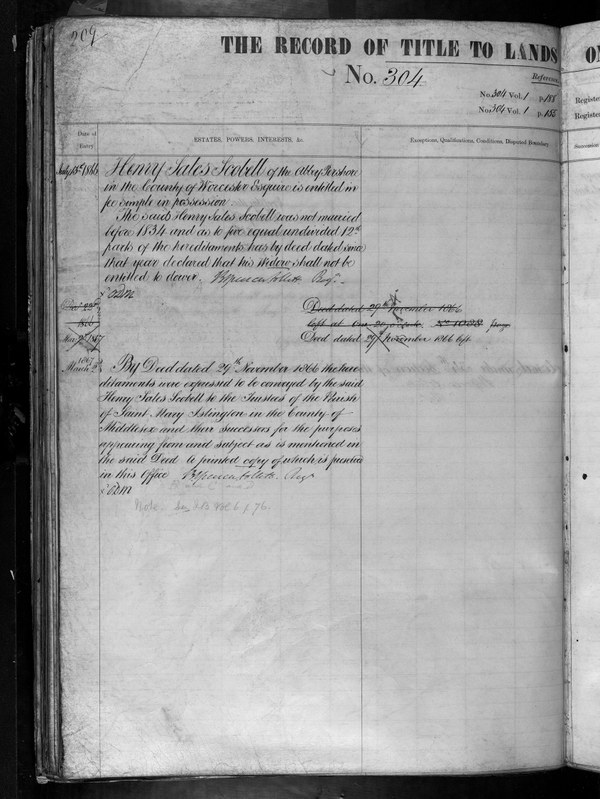 209
THE RECORD OF TITLE TO LANDS
No. 304
Reference
No. 304 Vol. 1 p. 188
No. 304 Vol. 1 p. 188
Date of Entry
ESTATES, POWERS, INTERESTS, &c.
Exceptions, Qualifications, Conditions, Disputed Boundary.
Henry Sales Scobell of the Abbey Pershore
in the County of Worcester Esquire is entitled in
fee simple in possession.
The said Henry Sales Scobell was not married
before 1834 and as to five equal undivided 12th
parts of the hereditaments has by deed dated since
that year declared that his Widow shall not be
entitled to dower.
Deed dated 29th November 1866
No 1008
Deed dated 29th November 1866 left
1867
March
By Deed dated 29th November 1866 the here
ditaments were expressed to be conveyed by the said
Henry Sales Scobell to the Trustees of the Parish
of Saint Mary Islington in the County of
Middlesex and their successors for the purposes
appearing from and subject as is mentioned in
the said Deed a printed copy of which is
in this Office
Note.
ON
Register
Register